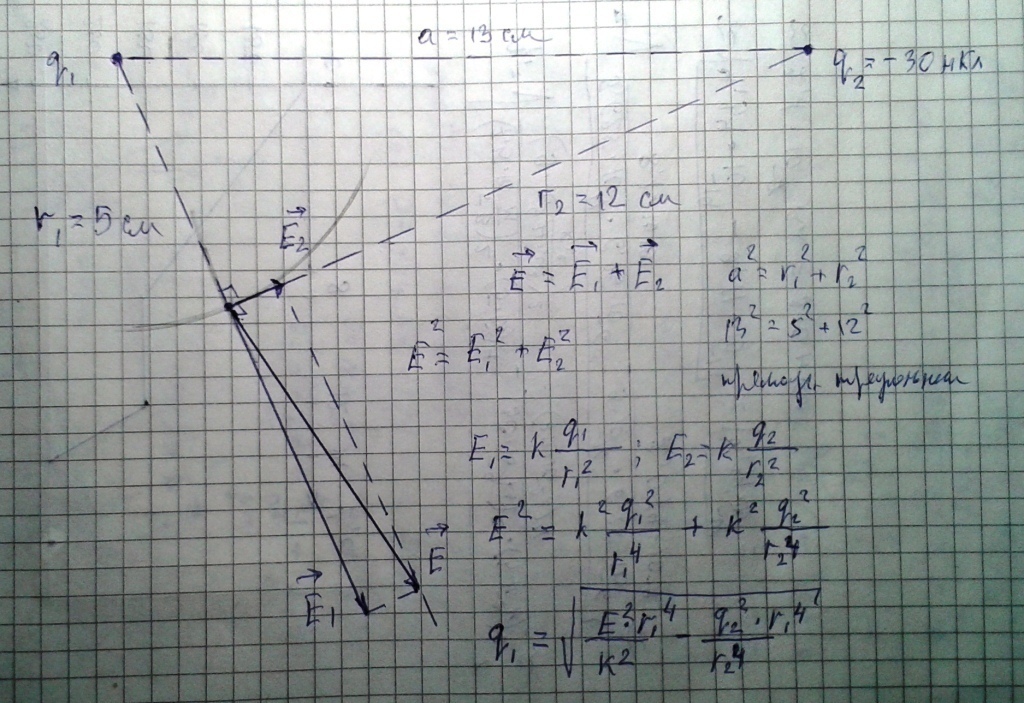 a = 13 см
q₁
q₂ = - 30 нКл
r₁ = 5 см
r₂ = 12 см
E⃗₂
E⃗ = E⃗₁ + E⃗₂
a² = r₁² + r₂²
13² = 5² + 12²
E² = E₁² + E₂²
E₁ = k q₁/r₁² ; E₂ = k q₂/r₂²
E² = k² q₁²/r₁⁴ + k² q₂²/r₂⁴
E⃗
E⃗₁
q₁ = √(E²·r₁⁴/k² - q₂²·r₁⁴/r₂⁴)